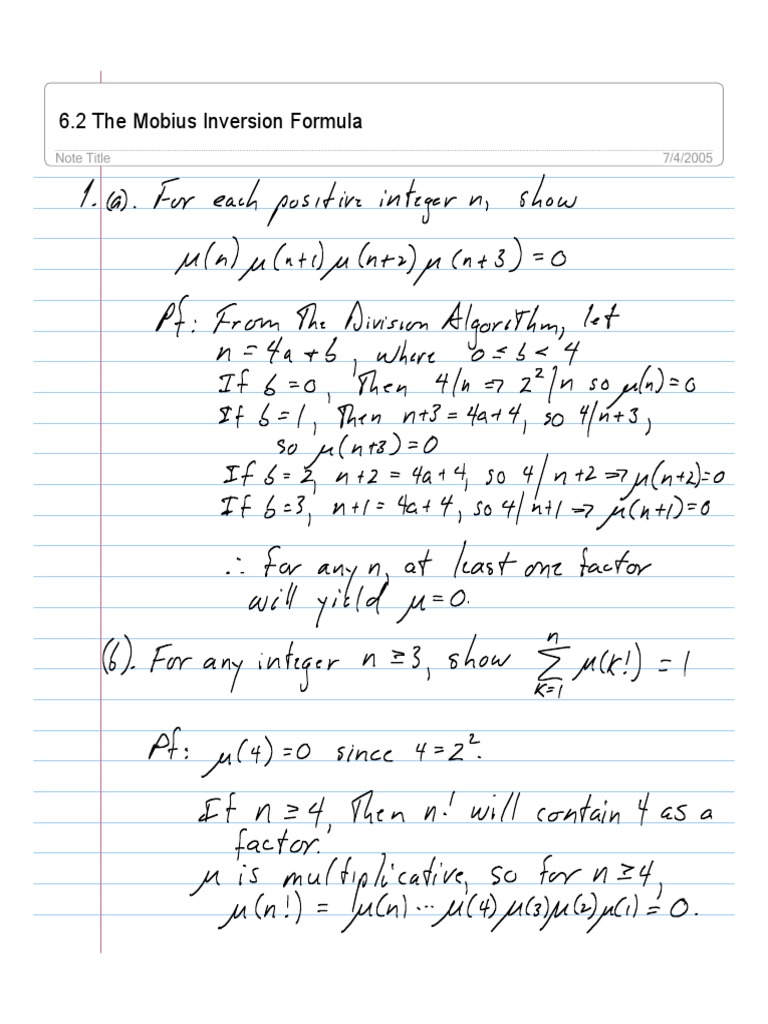 6.2 The Mobius Inversion Formula
Note Title
7/4/2005
1. (a). For each positive integer n, show
μ(n) μ(n+1) μ(n+2) μ(n+3) = 0
Pf: From The Division Algorithm, let
n = 4a + b, where 0 ≤ b < 4
If b = 0, Then 4/n ⇒ 2²/n so μ(n) = 0
If b = 1, Then n+3 = 4a+4, so 4/n+3,
so μ(n+3) = 0
If b = 2, n+2 = 4a+4, so 4/n+2 ⇒ μ(n+2)=0
If b = 3, n+1 = 4a+4, so 4/n+1 ⇒ μ(n+1)=0
∴ For any n, at least one factor
will yield μ = 0.
(b). For any integer n ≥ 3, show ∑_{k=1}^{n} μ(k!) = 1
Pf: μ(4) = 0 since 4 = 2².
If n ≥ 4, Then n! will contain 4 as a
factor.
μ is multiplicative, so for n ≥ 4,
μ(n!) = μ(n) ··· μ(4) μ(3) μ(2) μ(1) = 0.